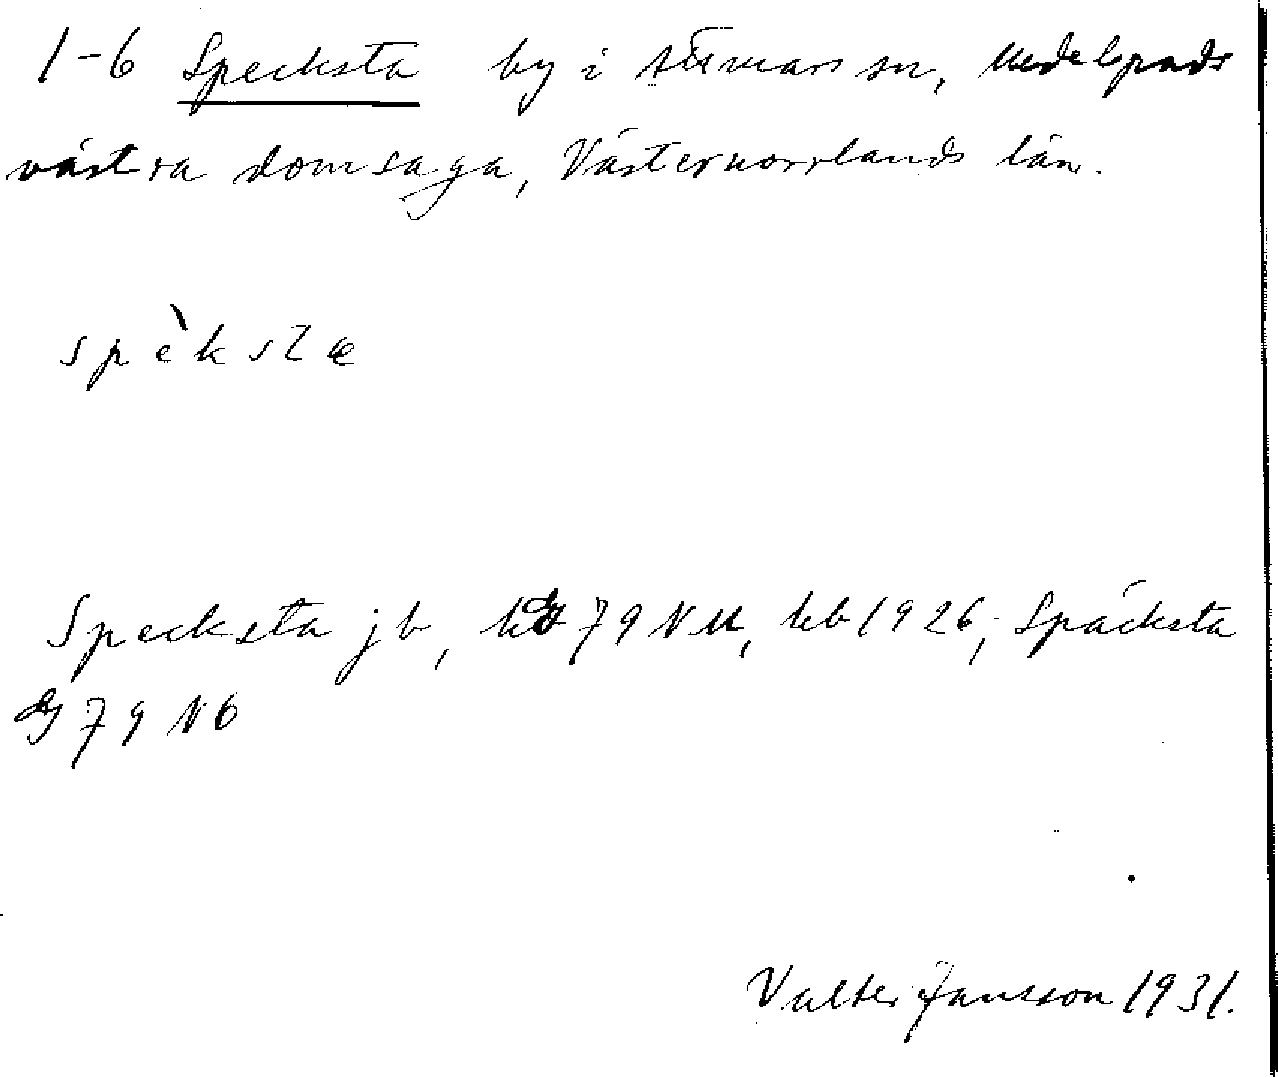 1-6 Specksta by i Stöde sn, Medelpads
västra domsaga, Västernorrlands län.
spèksta
Specksta jb, 79 NU, kb 1926, Späcksta
gj 79 N6
Valter Jansson 1931.